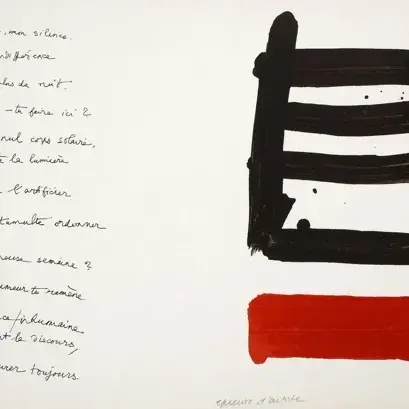 , mon silence.
ndifférence
plus de nuit.
- te faire ici ?
nul corps solaire,
la lumière
l'artificier
tumulte ordonner
euse semaine ?
umeur te ramène
ce/inhumaine
t le discours,
urer toujours.
épreuve d'artiste